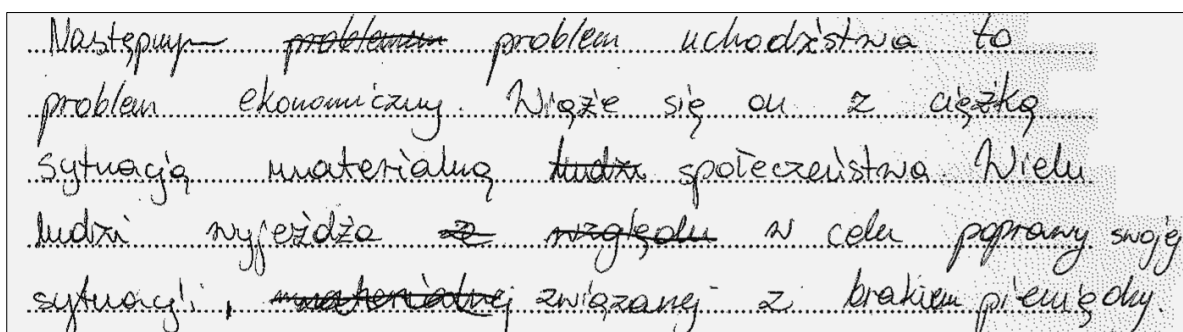 Następnym problemem problem uchodźstwa to
problem ekonomiczny. Wiąże się on z ciężką
sytuacją materialną ludzi społeczeństwa. Wielu
ludzi wyjeżdża ze względu w celu poprawy swojej
sytuacji, materialnej związanej z brakiem pieniędzy.